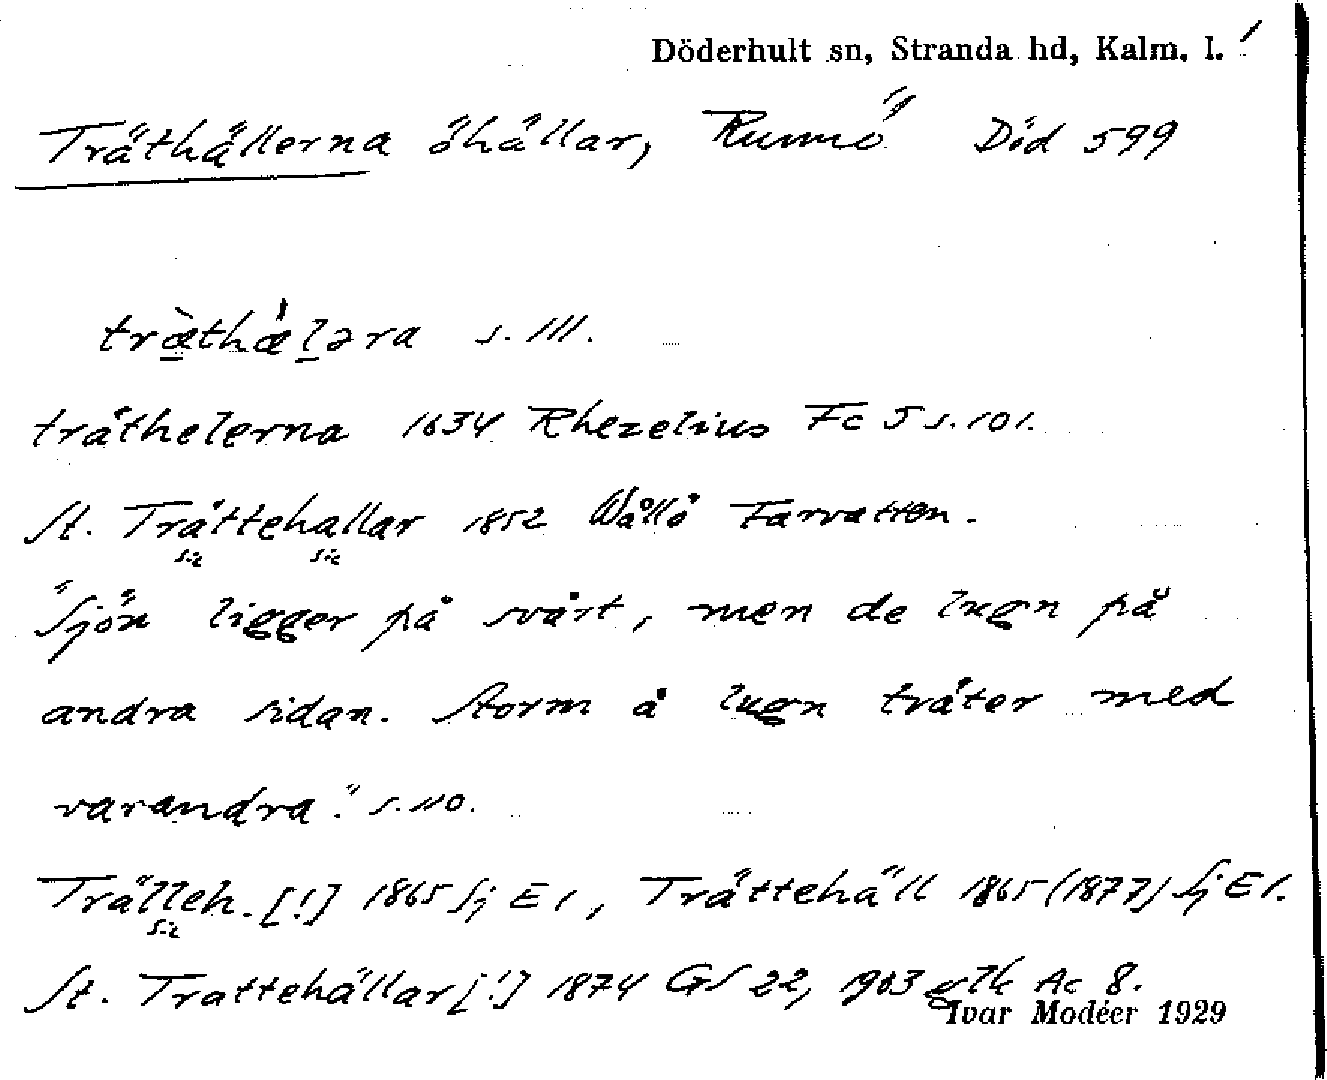 Döderhult sn, Stranda hd, Kalm. l.
Träthällerna öhällar, Runnö Död 599
træ̀thæ̀l̠əra s. 111.
tråthelerna 1634 Rhezelius Fc 5 s. 101.
St. Tråttehallar 1852 Wållö Farvatten.
sic sic
"Sjön ligger på svårt, men de lugn på
andra sidan. Storm å lugn tråter med
varandra." s. 110.
Trälleh. [!] 1865 Sj E 1, Tråttehäll 1865 (1877) Sj E 1.
sic
St. Trattehällar [!] 1874 GS 22, 1903 Ac 8.
Ivar Modéer 1929